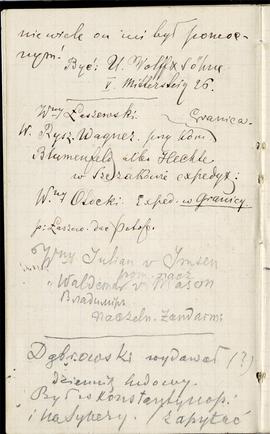 niewiele on mi był pomoc-
nym!
Być: U. Wolff & Söhne
V. Mittersteig 26.
Wny Laszewski. Granica.
W. Rysz. Wagner. przy kom
Blumenfeld albo Hechle
w Szczakowie expedyt:
Wny Osocki. Exped. w Granicy
p:
Wny Julian v Jmsen
pom. nacz
Waldemar v Mason
Bradumips
naczeln. Żandarm:
Dąbrowski wydawał (?)
dziennik ludowy.
Był w Konstantynop:
i na Sybery. Zapytać